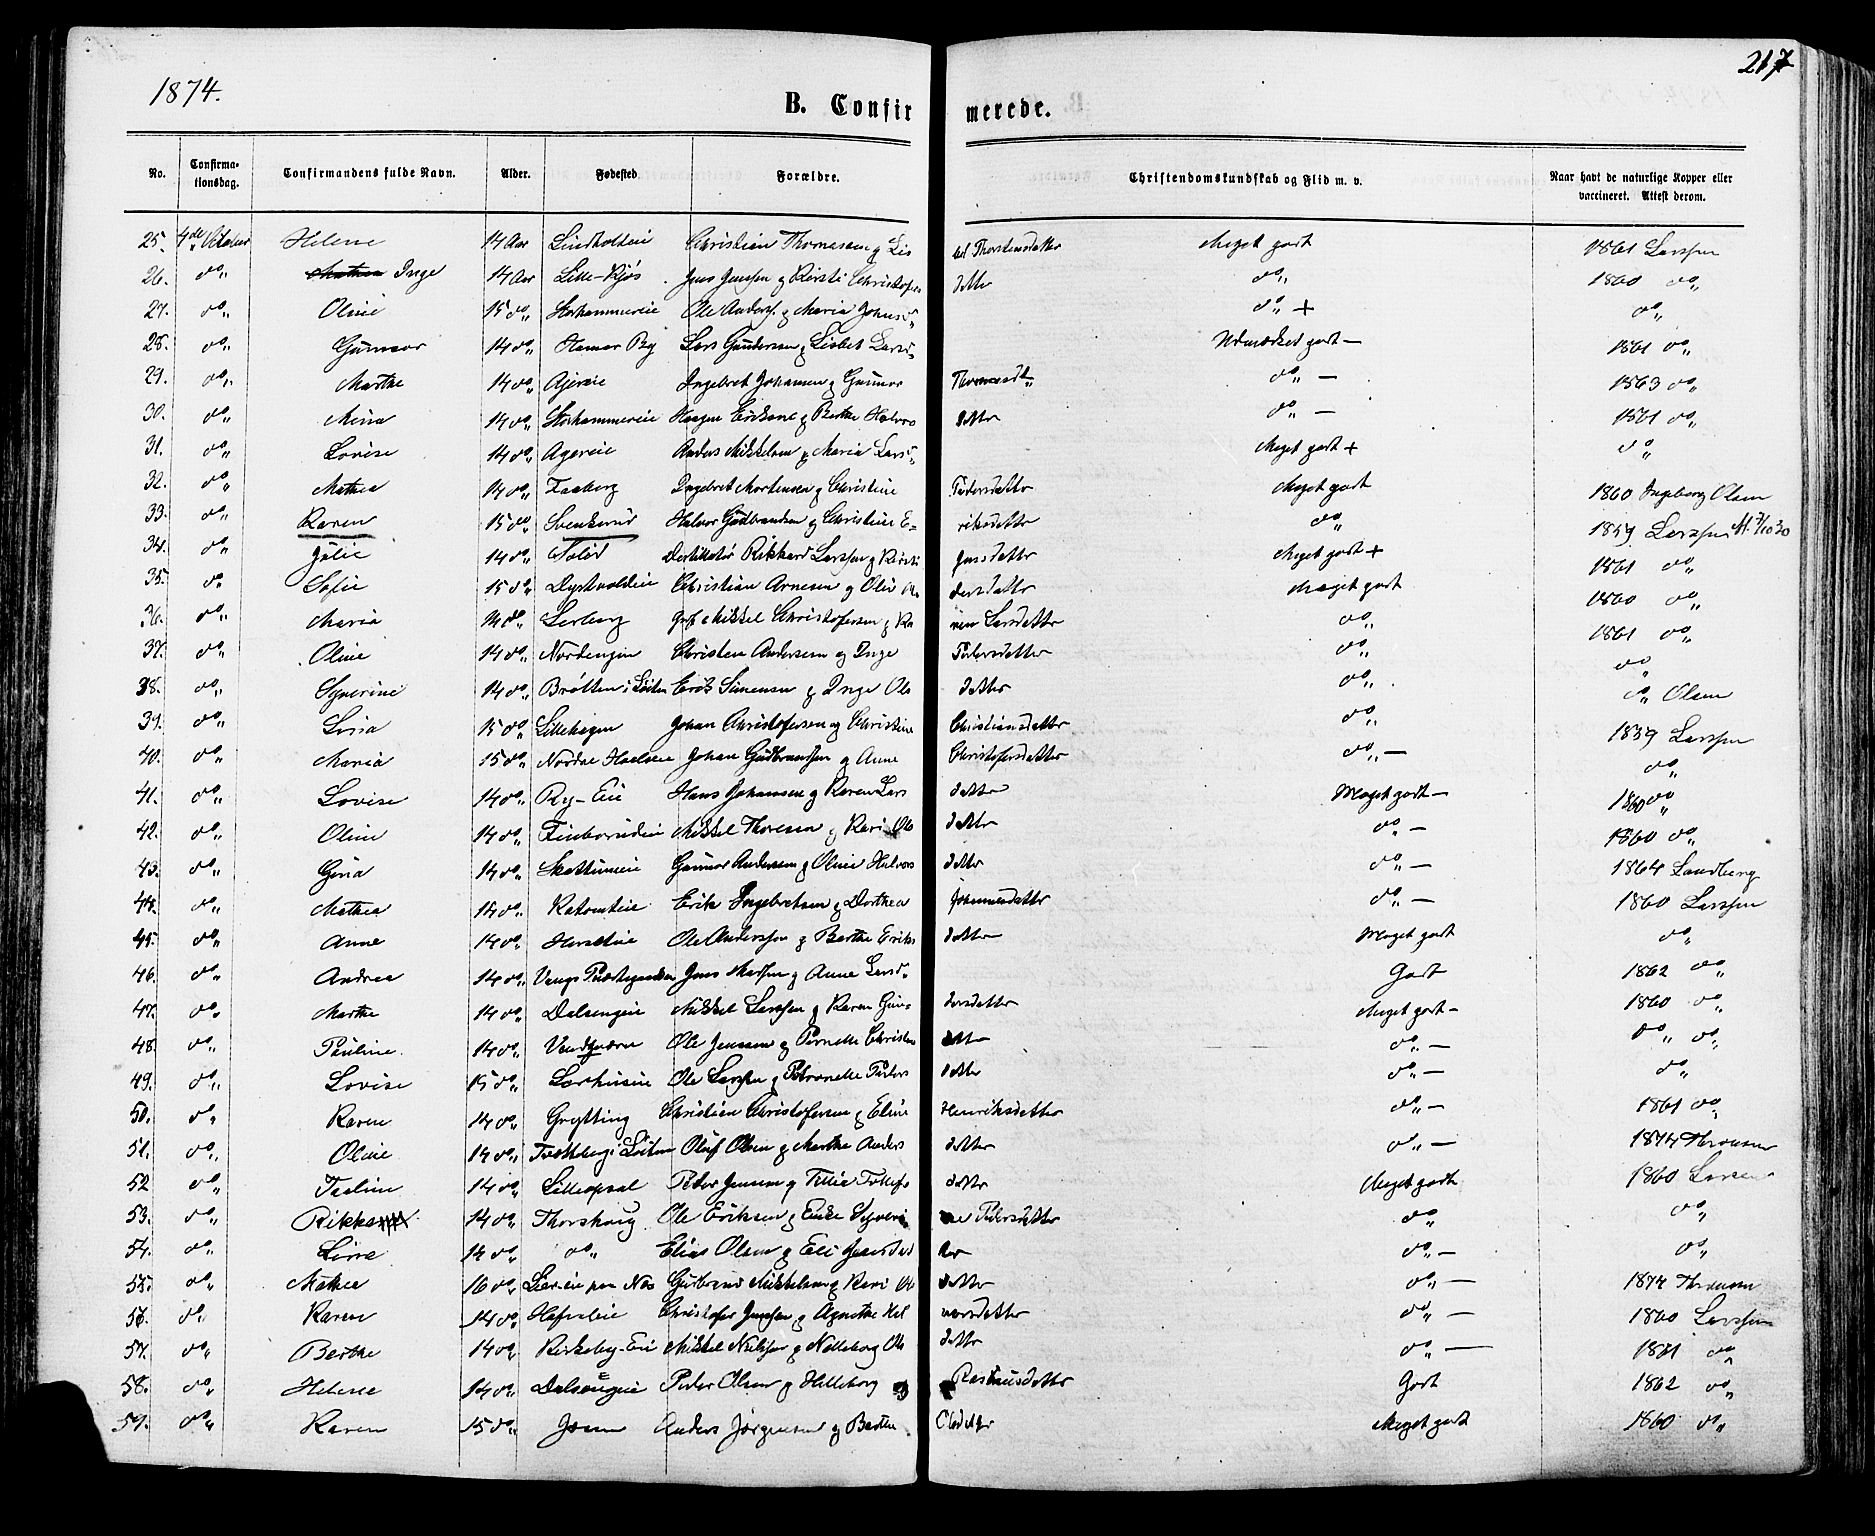 1874.
217
B. Confirmerede.
No. Confirmationsdag. Confirmandens fulde Navn. Alder. Fødested. Forældre. Christendomskundskab og Flid m. v. Naar havt de naturlige Kopper eller vaccineret. Attest derom.
25. 4de October Helene 14 Aar Lindholteie Christian Thomasen og Lisbet Thorstensdatter Meget godt 1861 Larssen
26. do „ Inge 14 Aar Lille-Kjøs Jens Jenssen og Kersti Christofersdatter do „ 1860 do „
27. do „ Oline 15 do „ Storhammereie Ole Anders. og Maria Johnsd „ do „ + do „
28. do „ Gunnor 14 do „ Hamar By Lars Gundersen og Lisbet Larsd „ Udmærket godt — 1861 do „
29. do „ Marthe 14 do „ Ajereie Ingebret Johansen og Gunnor Thomasdt „ do „ — 1863 do „
30. do „ Mina 14 do „ Storhammereie Haagen Eriksen og Berthe Halvorsdatter do „ — 1861 do „
31. do „ Lovise 14 do „ Agereie Anders Mikkelsen og Maria Larsd „ Meget godt + do „
32. do „ Mathea 14 do „ Faaberg Ingebret Mortensen og Christine Pedersdatter Meget godt 1860 Ingeborg Olsen
33. do „ Karen 15 do „ Svenkerud Halvor Gudbrandsen og Christine Eriksdatter do „ 1859 Larssen M. 7/10 30
34. do „ Julie 14 do „ Tolød Rikkard Larssen og Kersti Jensdatter Meget godt + 1861 do „
35. do „ Sofie 15 do „ Dystvoldeie Christian Arnesen og Oliv Andersdatter Meget godt 1860 do „
36. do „ Maria 14 do „ Lerberg Mikkel Christofersen og Karen Larsdatter do „ 1861 do „
37. do „ Oline 14 do „ Nordengen Christen Andersen og Inge Pedersdatter do „ do „
38. do „ Syverine 14 do „ Bråtten i Løiten Erik Simensen og Inge Olsdatter do „ do „ Olsen
39. do „ Lina 15 do „ Lillehagen Johan Christofersen og Christine Christiansdatter do „ 1859 Larssen
40. do „ Maria 15 do „ Nordre Johan Gudbrandsen og Anne Christofersdatter do „ — do „
41. do „ Lovise 14 do „ Ry-Eie Hans Johansen og Karen Larsdatter Meget godt — 1860 do „
42. do „ Oline 14 do „ Mikkel Thoresen og Kari Olsdatter do „ — 1860 do „
43. do „ Gina 14 do „ Skattumeie Gunnor Andersen og Oline Halvorsdatter do „ — 1864 Sandberg
44. do „ Mathea 14 do „ Erik Ingebretsen og Dorthea Johannesdatter do „ — 1860 Larssen
45. do „ Anne 14 do „ Ole Anderssen og Berthe Eriksdatter Meget godt do „
46. do „ Andrea 14 do „ Vangs Præstegaarden Jens Madsen og Anne Larsd „ Godt 1862 do „
47. do „ Marthe 14 do „ Dalsengeie Mikkel Larssen og Karen Gundersdatter Meget godt — 1860 do „
48. do „ Pauline 14 do „ Vendkværn Ole Jenssen og Pernelle Christensdatter do „ — do „ do „
49. do „ Lovise 15 do „ Ole Larssen og Petronelle Pedersdatter do „ — do „
50. do „ Karen 14 do „ Grytting Christian Christofersen og Eline Henriksdatter do „ — 1861 do „
51. do „ Oline 14 do „ i Løiten Oluf Olsen og Marthe Andersdatter do „ — 1874 Thronsen
52 do „ Pauline 14 do „ Lilleopsal Peder Jensen og Tilie Tollefsdatter Meget godt 1860 Larsen
53. do „ Rikka 14 do „ Thorshoug Ole Eriksen og Syverine Pedersdatter do „ do „
54. do „ Line 14 do „ do „ Elias Olsen og Eli Jensdatter do „ — do „
55. do „ Mathea 16 do „ paa Næs Gulbrand Mikkelsen og Kari Olsdatter do „ — 1874 Thronsen
56. do „ Karen 14 do „ Hafsaleie Christofer Jenssen og Agnethe Halvorsdatter do „ — 1860 Larssen
57. do „ Berthe 14 do „ Kirkeby-Eie Mikkel Nielsen og Olsdatter do „ — 1871 do „
58. do „ Helene 14 do „ Dalsengeie Peder Olsen og Helleborg Rasmusdatter Godt 1862 do „
59. do „ Karen 15 do „ Anders Jørgensen og Berthe Olsdatter Meget godt 1860 do „